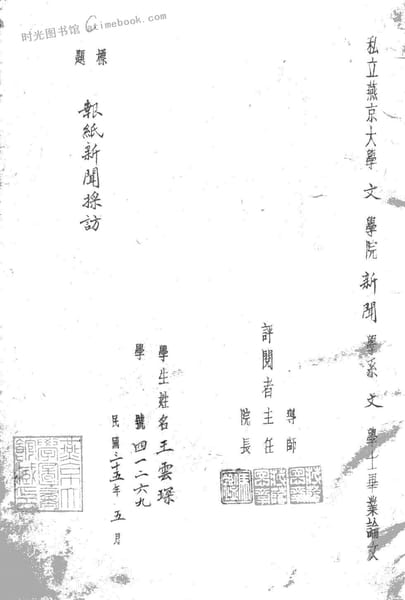 时光图书馆 timebook.com
私立燕京大學 文 學院 新聞 學系 文 學士畢業論文
導師
評閱者主任
院長
學生姓名 王雲琛
學 號 四一二六九
民國三十五年 五 月
標題
報紙新聞採訪